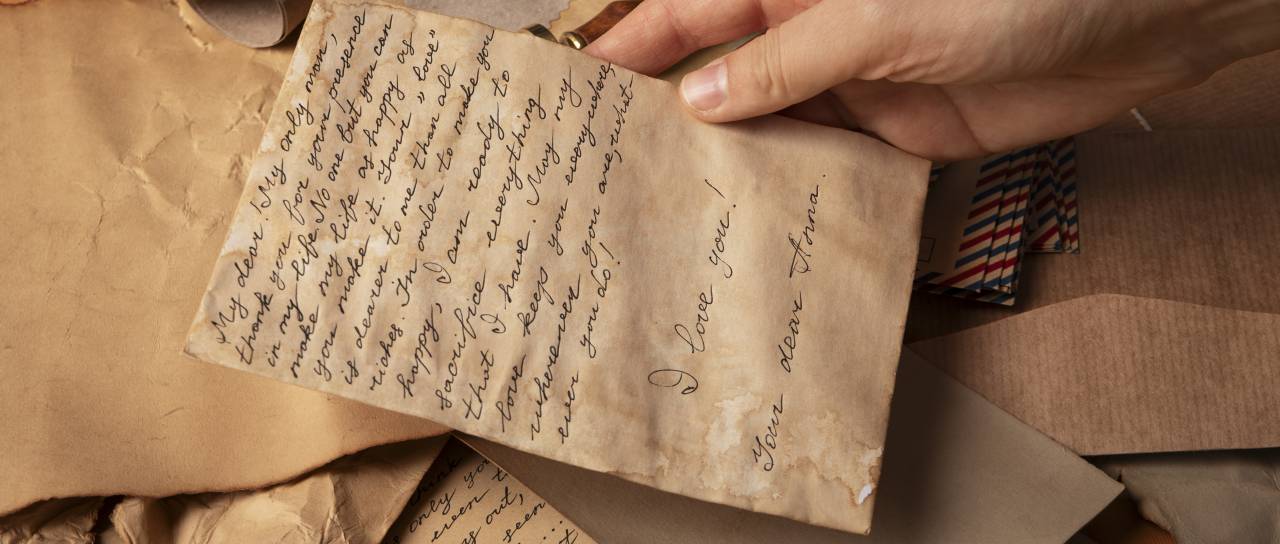 My dear! My only man,
thank you for your presence
in my life. No one but you can
make my life as happy as
you make it. Your "love"
is dearer to me than all
riches. In order to make you
happy, I am ready to
sacrifice everything
that I have. May my
love keep you everywhere,
wherever you are, what-
ever you do!
I love you!
Your dear Anna.
think
only you
even t
as out,
seen